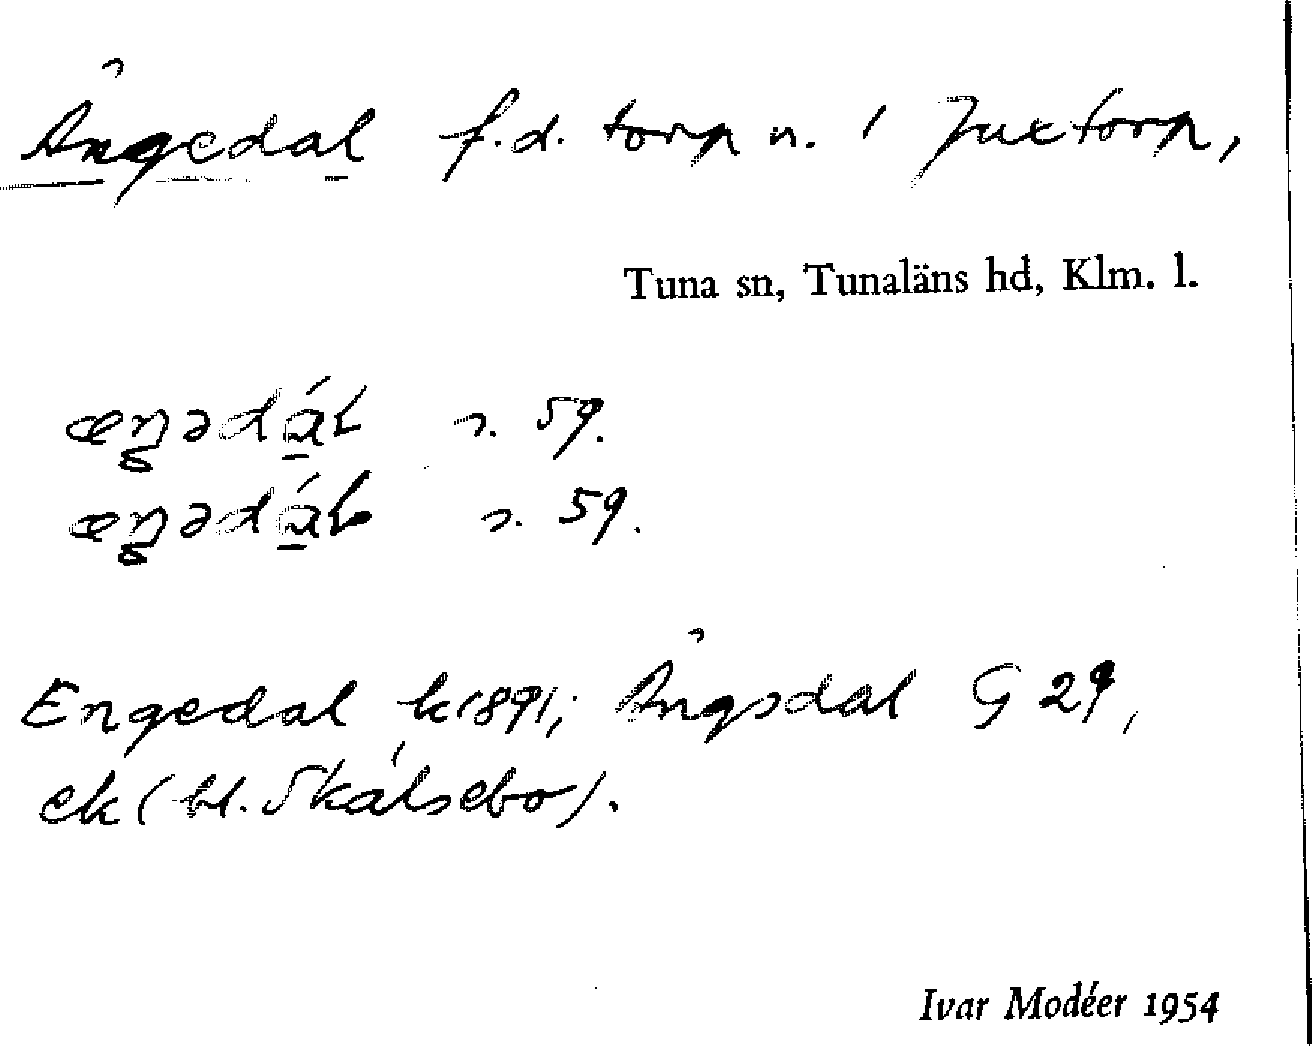 Ängedal f.d. torp n. i Juxtorp,
Tuna sn, Tunaläns hd, Klm. l.
æŋədáL s. 59.
æŋədáL s. 59.
Engedal k1891; Ängsdal G 29,
ek (bl. Skálsebo).
Ivar Modéer 1954